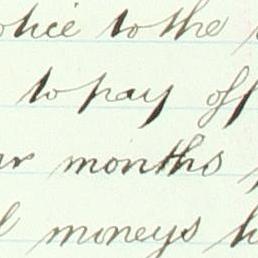 to the
to pay off
months
moneys